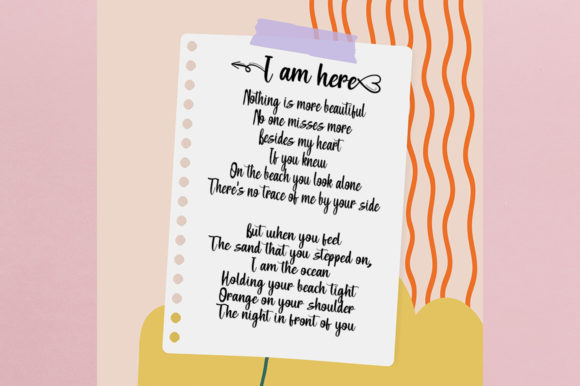 I am here
Nothing is more beautiful
No one misses more
Besides my heart
If you knew
On the beach you look alone
There's no trace of me by your side
But when you feel
The sand that you stepped on,
I am the ocean
Holding your beach tight
Orange on your shoulder
The night in front of you